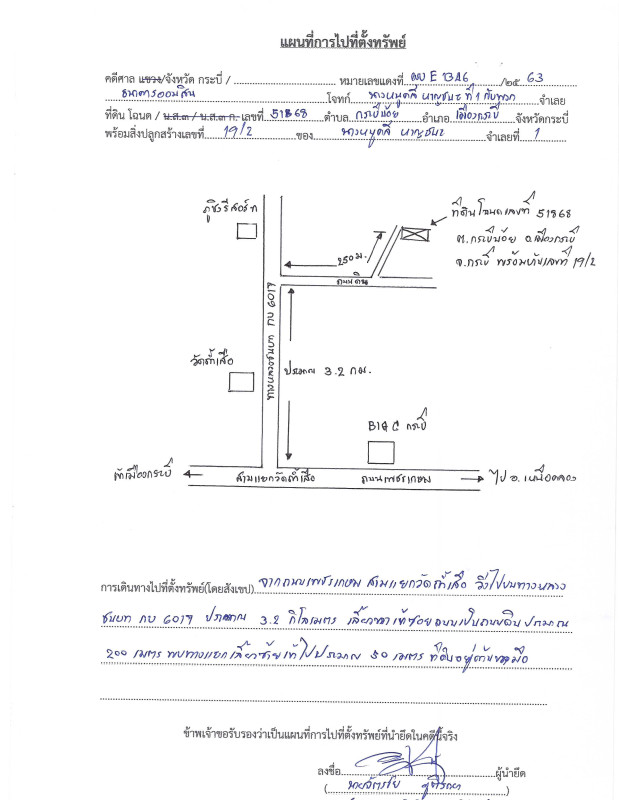 แผนที่การไปที่ตั้งทรัพย์
คดีศาล แขวง/จังหวัด กระบี่ / หมายเลขแดงที่ ผบ E 1346 /๒๕ 63
ธนาคารออมสิน โจทก์ ที่ 1 กับพวก จำเลย
ที่ดิน โฉนด / น.ส.๓ / น.ส.๓ ก. เลขที่ 51868 ตำบล กระบี่น้อย อำเภอ เมืองกระบี่ จังหวัดกระบี่
พร้อมสิ่งปลูกสร้างเลขที่ 19/2 ของ จำเลยที่ 1
ภูชิวรีสอร์ท
ที่ดินโฉนดเลขที่ 51868
ต.กระบี่น้อย อ.เมืองกระบี่
จ.กระบี่ พร้อมบ้านเลขที่ 19/2
250 ม.
ถนนดิน
ทางหลวงชนบท กบ 6019
วัดถ้ำเสือ
ประมาณ 3.2 กม.
BIG C กระบี่
เข้าเมืองกระบี่
สามแยกวัดถ้ำเสือ
ถนนเพชรเกษม
ไป อ.เหนือคลอง
การเดินทางไปที่ตั้งทรัพย์(โดยสังเขป) จากถนนเพชรเกษม สามแยกวัดถ้ำเสือ วิ่งไปบนทางหลวง
ชนบท กบ 6019 ประมาณ 3.2 กิโลเมตร เลี้ยวขวาเข้าซอยถนนเป็นถนนดิน ประมาณ
200 เมตร พบทางแยกเลี้ยวซ้ายเข้าไปประมาณ 50 เมตร ที่ดินอยู่ด้านขวามือ
ข้าพเจ้าขอรับรองว่าเป็นแผนที่การไปที่ตั้งทรัพย์ที่นำยึดในคดีนี้จริง
ลงชื่อ ผู้นำยึด